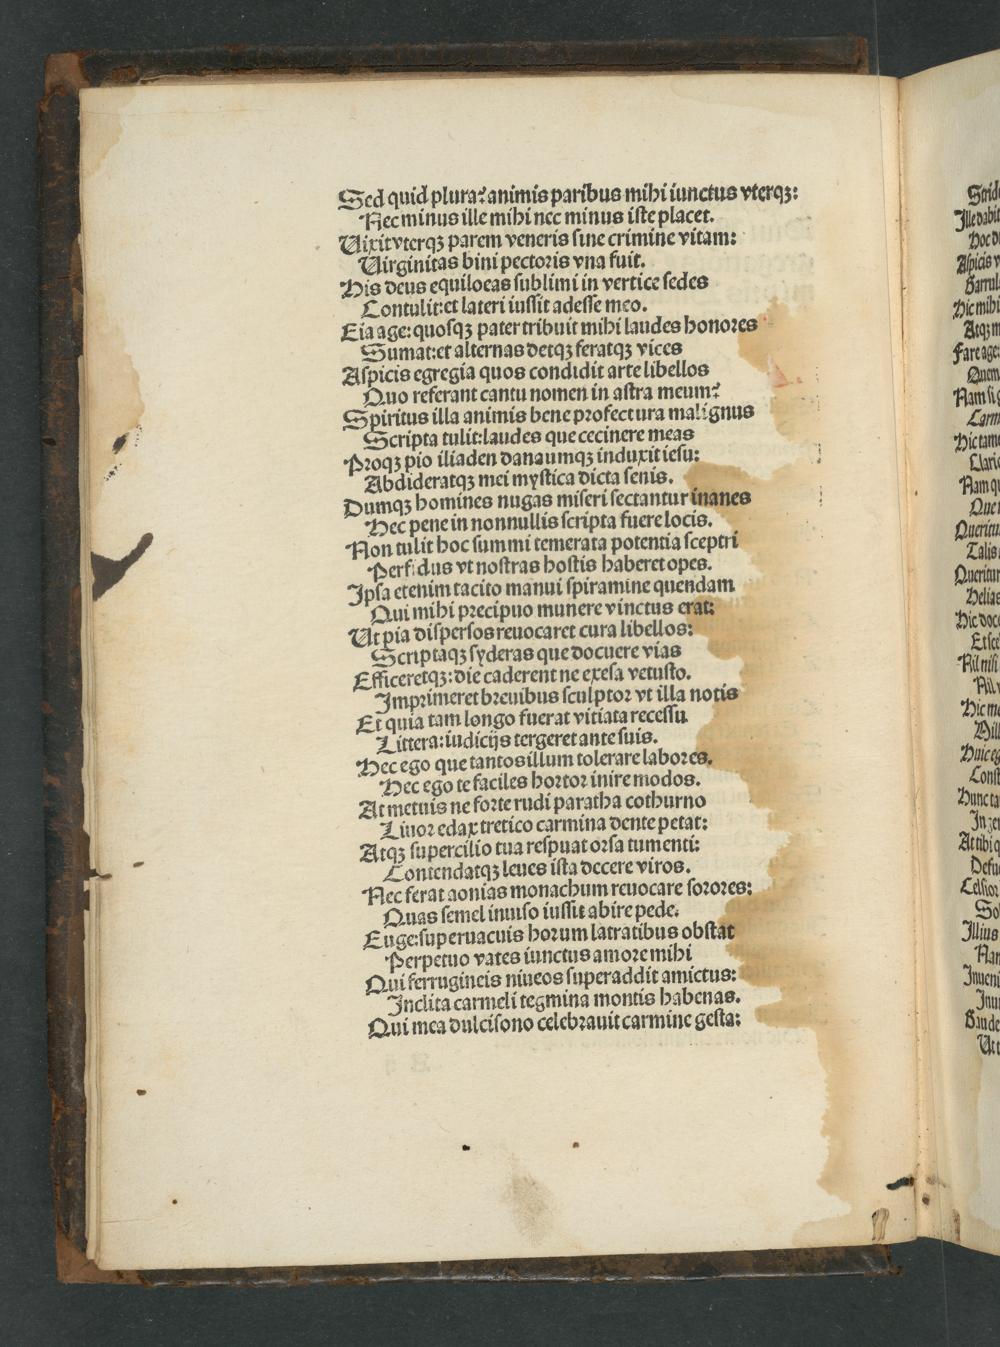 Sed quid plura? animis paribus mihi iunctus vterqꝫ:
Nec minus ille mihi nec minus iste placet.
Uixit vterqꝫ parem veneris sine crimine vitam:
Uirginitas bini pectoris vna fuit.
His deus equilocas sublimi in vertice sedes
Contulit: et lateri iussit adesse meo.
Eia age: quosqꝫ pater tribuit mihi laudes honores
Sumat: et alternas detqꝫ feratqꝫ vices
Aspicis egregia quos condidit arte libellos
Quo referant cantu nomen in astra meum?
Spiritus illa animis bene profectura malignus
Scripta tulit: laudes que cecinere meas
Proqꝫ pio iliaden danaumqꝫ induxit iesu:
Abdideratqꝫ mei mystica dicta senis.
Dumqꝫ homines nugas miseri sectantur inanes
Hec pene in nonnullis scripta fuere locis.
Non tulit hoc summi temerata potentia sceptri
Perfidus vt nostras hostis haberet opes.
Ipsa etenim tacito manui spiramine quendam
Qui mihi precipuo munere vinctus erat:
Ut pia dispersos reuocaret cura libellos:
Scriptaqꝫ syderas que docuere vias
Efficeretqꝫ: die caderent ne exesa vetusto.
Imprimeret breuibus sculptor vt illa notis
Et quia tam longo fuerat vitiata recessu
Littera: iudicijs tergeret ante suis.
Hec ego que tantos illum tolerare labores.
Hec ego te faciles hortor inire modos.
At metuis ne forte rudi paratha cothurno
Liuor edax tretico carmina dente petat:
Atqꝫ supercilio tua respuat orsa tumenti:
Contendatqꝫ leues ista decere viros.
Nec ferat aonias monachum reuocare sorores:
Quas semel inuiso iussit abire pede.
Euge: superuacuis horum latratibus obstat
Perpetuo vates iunctus amore mihi
Qui ferrugineis niueos superaddit amictus:
Inclita carmeli tegmina montis habenas.
Qui mea dulcisono celebrauit carmine gesta: